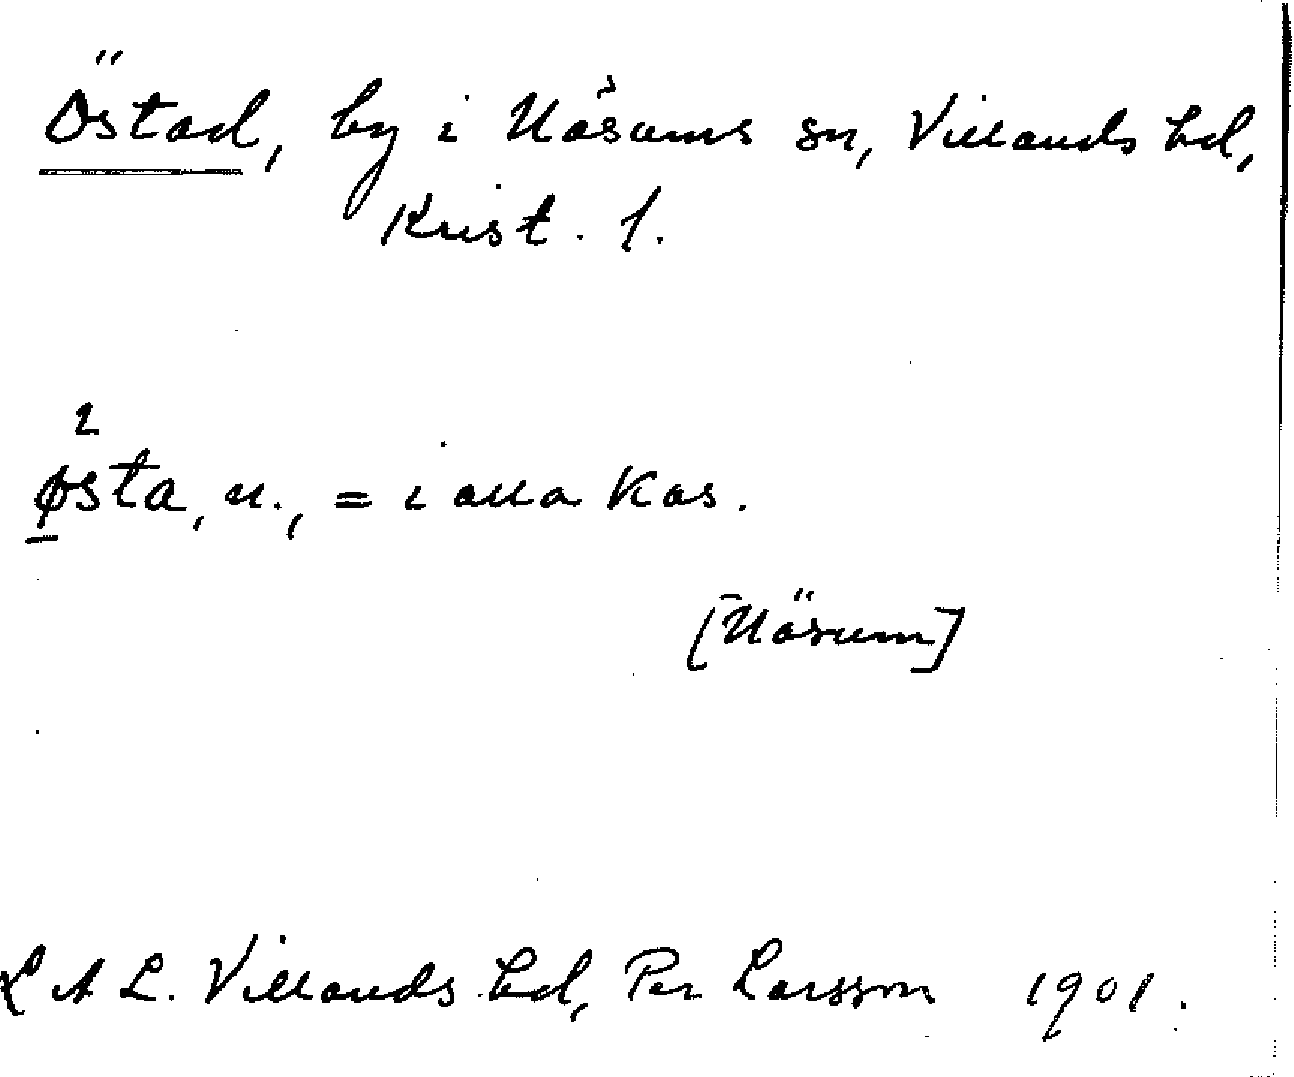 Östad, by i Näsums sn, Villands hd,
Krist. l.
2
østa, n., = i alla kas.
[Näsum]
L A L. Villands hd, Per Larsson 1901.